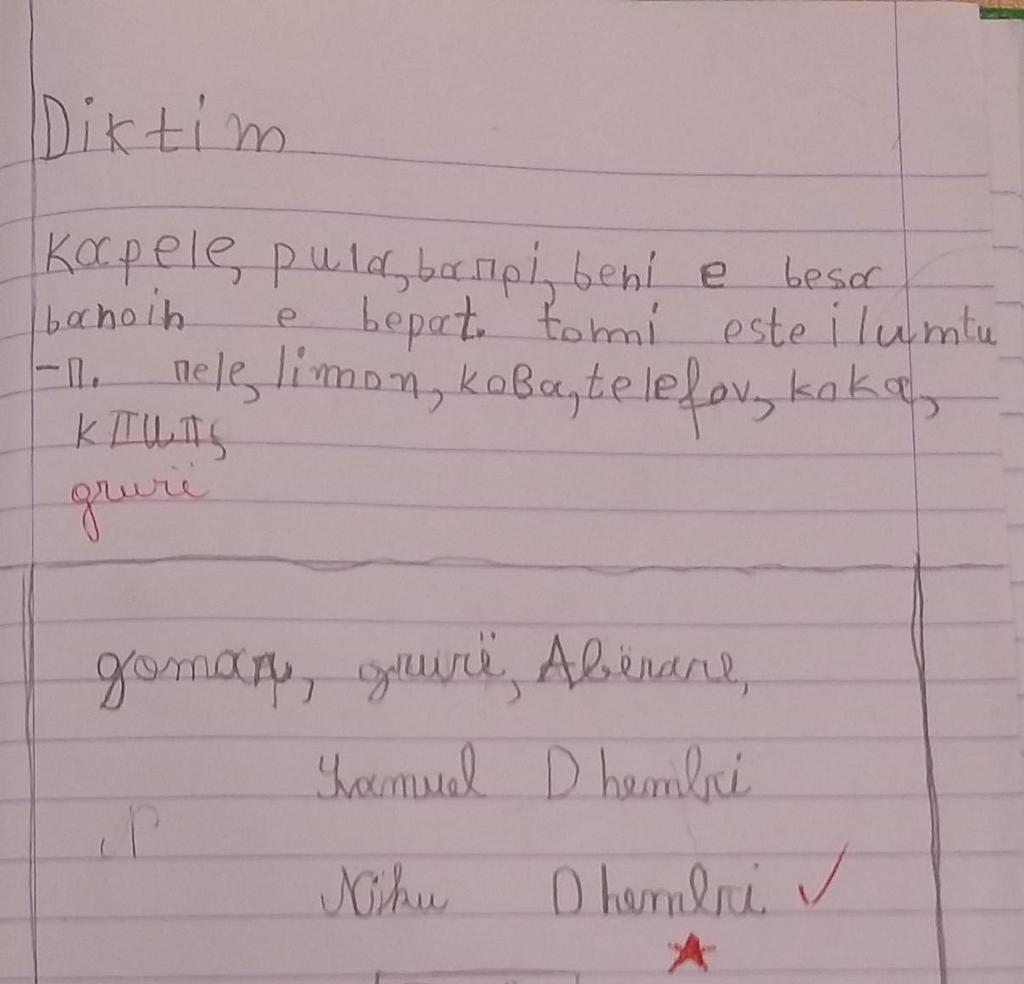 Diktim
kapele, pula, banpi, beni e besa
banoih e bepat. tomi este ilumtu
-n. nele, limon, koBa, telefov, koka,
gruri
gomary, grurë, Abërare,
Dhembri
Niku Dhembri